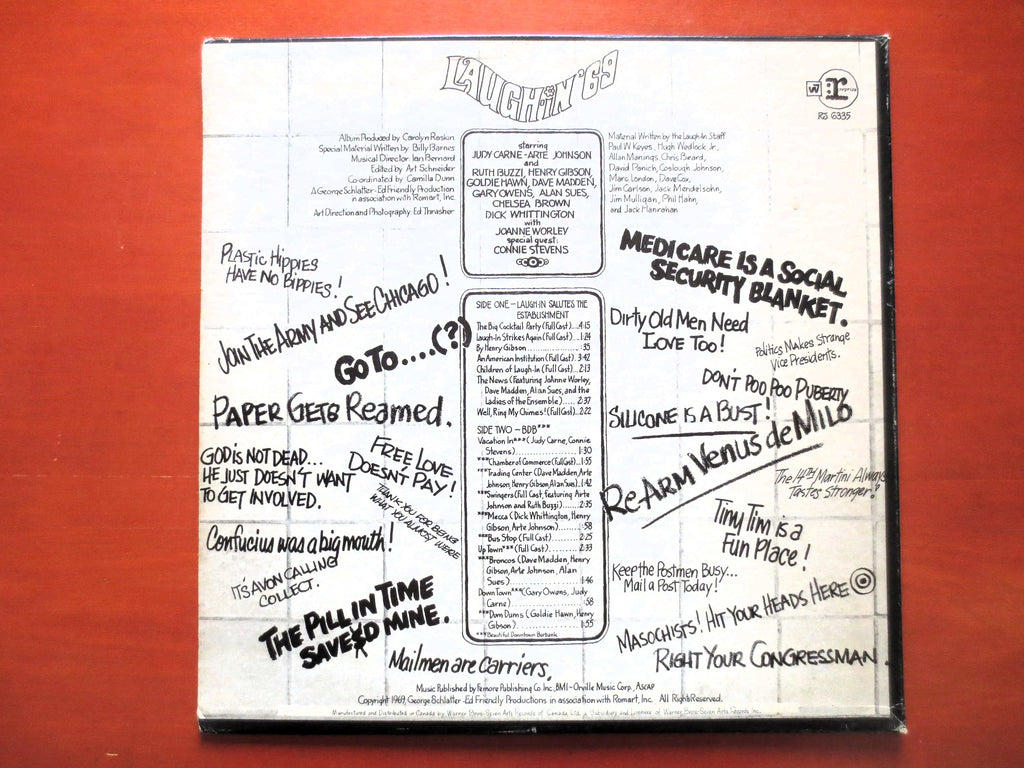 LAUGH-IN '69
W r reprise
RS 6335
Album Produced by Carolyn Raskin
Special Material Written by Billy Barnes
Musical Director Ian Bernard
Edited by Art Schneider
Co-ordinated by Camilla Dunn
A George Schlatter-Ed Friendly Production
in association with Romart, Inc.
Art Direction and Photography: Ed Thrasher
starring
JUDY CARNE-ARTE JOHNSON
and
RUTH BUZZI, HENRY GIBSON,
GOLDIE HAWN, DAVE MADDEN,
GARY OWENS, ALAN SUES,
CHELSEA BROWN
DICK WHITTINGTON
with
JOANNE WORLEY
special guest:
CONNIE STEVENS
Material Written by the Laugh-In Staff
Paul W Keyes, Hugh Wedlock Jr.,
Allan Manings, Chris Beard,
David Panich, Coslough Johnson,
Marc London, Dave Cox,
Jim Carlson, Jack Mendelsohn,
Jim Mulligan, Phil Hahn,
and Jack Hanrahan
PLASTIC HIPPIES
HAVE NO BIPPIES!
JOIN THE ARMY AND SEE CHICAGO!
GO TO....(?)
PAPER GETS REAMED.
GOD IS NOT DEAD...
HE JUST DOESN'T WANT
TO GET INVOLVED.
FREE LOVE
DOESN'T PAY!
THANK YOU FOR BEING
WHAT YOU ALMOST WERE
Confucius was a big mouth!
IT'S AVON CALLING
COLLECT.
THE PILL IN TIME
SAVED MINE.
Mailmen are carriers.
SIDE ONE - LAUGH-IN SALUTES THE
ESTABLISHMENT
The Big Cocktail Party (Full Cast)...4:15
Laugh-In Strikes Again (Full Cast)...1:24
By Henry Gibson......:35
An American Institution (Full Cast). 3:42
Children of Laugh-In (Full Cast)...2:13
The News (Featuring JoAnne Worley,
Dave Madden, Alan Sues, and the
Ladies of the Ensemble).....2:37
Well, Ring My Chimes! (Full Cast)..2:22
SIDE TWO - BDB***
Vacation In***(Judy Carne, Connie
Stevens)..........1:30
***Chamber of Commerce (Full Cast)..1:55
***Trading Center (Dave Madden, Arte
Johnson, Henry Gibson, Alan Sues). 1:42
***Swingers (Full Cast, Featuring Arte
Johnson and Ruth Buzzi)......2:35
***Mecca (Dick Whittington, Henry
Gibson, Arte Johnson)......:58
***Bus Stop (Full Cast)......2:25
Up Town***(Full Cast)......2:33
***Broncos (Dave Madden, Henry
Gibson, Arte Johnson, Alan
Sues)..........1:46
Down Town***(Gary Owens, Judy
Carne)..........:58
***Dum Dums (Goldie Hawn, Henry
Gibson)..........1:55
***Beautiful Downtown Burbank
MEDICARE IS A SOCIAL
SECURITY BLANKET.
Dirty Old Men Need
LOVE TOO!
Politics Makes Strange
Vice Presidents.
DON'T POO POO PUBERTY
SILICONE IS A BUST!
ReARM VENUS de MILO
The 14TH Martini Always
Tastes Stronger?
Tiny Tim is a
Fun Place!
Keep the Postmen Busy...
Mail a Post Today!
MASOCHISTS! HIT YOUR HEADS HERE
RIGHT YOUR CONGRESSMAN.
Music Published by Femore Publishing Co. Inc., BMI-Orville Music Corp., ASCAP
Copyright 1969, George Schlatter-Ed Friendly Productions in association with Romart, Inc. All Rights Reserved.
Manufactured and Distributed in Canada by Warner Bros-Seven Arts Records of Canada, Ltd. a Subsidiary and Licensee of Warner Bros-Seven Arts Records Inc.